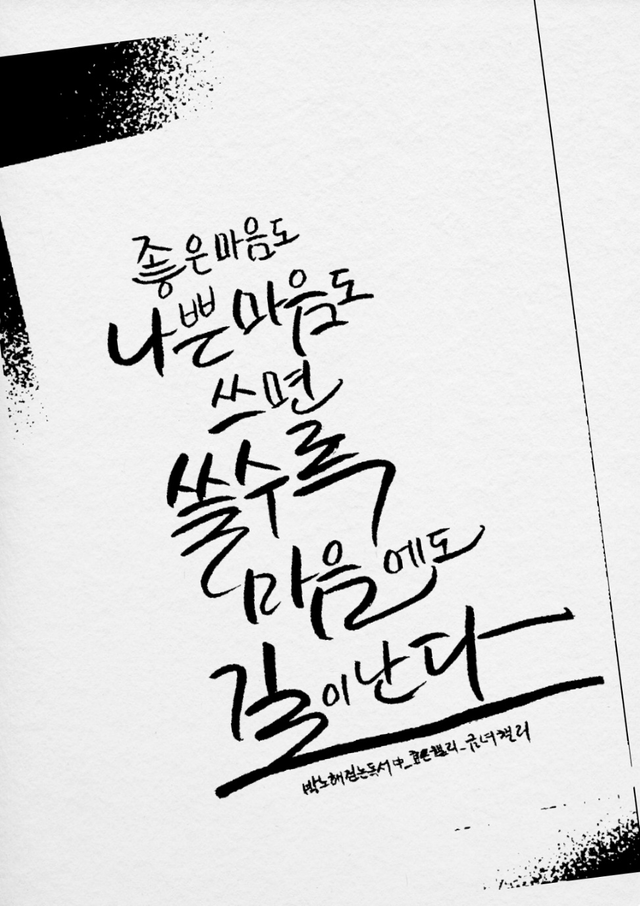 좋은마음도
나쁜마음도
쓰면
쓸수록
마음에도
길이난다
박노해걷는독서中_효은캘리_금녀캘리